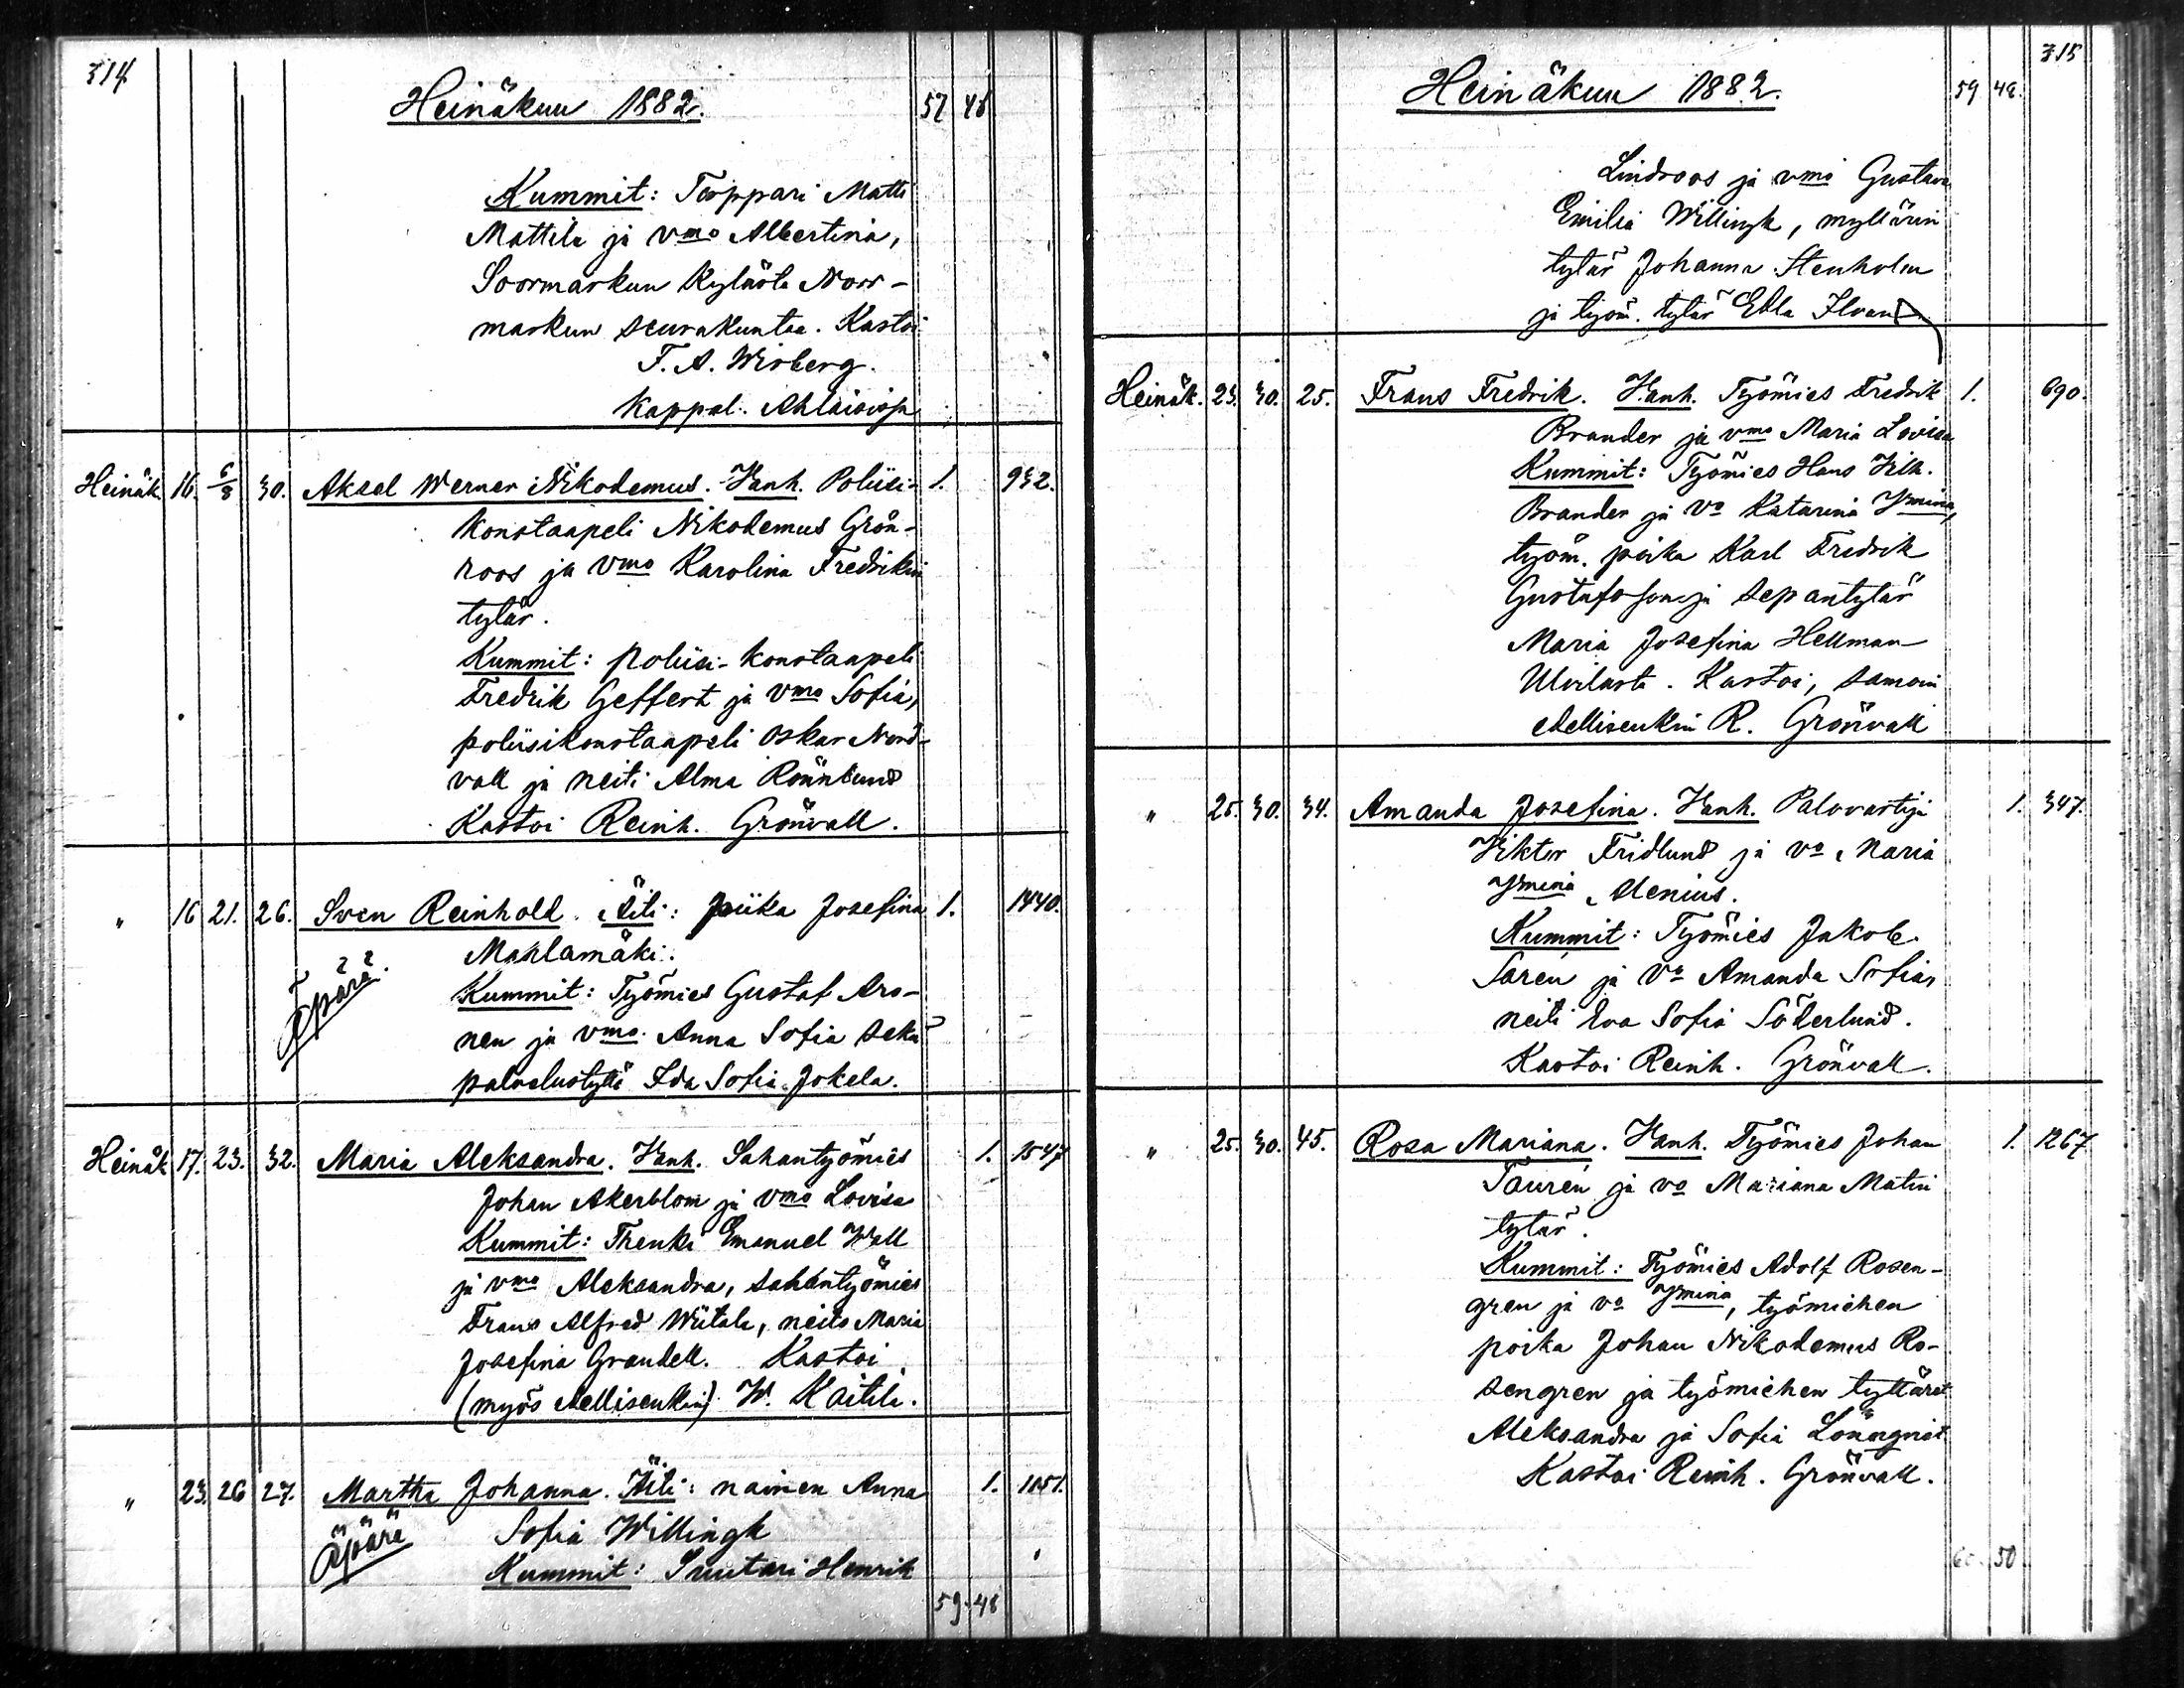 314
Heinäkuu 1882. 57 46
Kummit: Torppari Matti
Mattila ja vmo Albertina,
Soormarkun kylästä Norr-
markun seurakuntaa. Kastoi
F. A. Wirberg.
Kappal. Ahlaisissa
Heinäk. 16. 6/8 30. Aksel Werner Nikodemus. Vanh. Poliisi- 1. 932.
konstaapeli Nikodemus Grön-
roos ja vmo Karolina Fredrikin
tytär.
Kummit: poliisi-konstaapeli
Fredrik Geffert ja vmo Sofia,
poliisikonstaapeli Oskar Nord-
vall ja neiti Alma Rönnlund
Kastoi Reinh. Grönvall.
" 16 21. 26. Sven Reinhold. Äiti: piika Josefina 1. 1440.
Mahlamäki.
Äpärä.
Kummit: Työmies Gustaf Aro-
nen ja vmo. Anna Sofia sekä
palvelustyttö Ida Sofia Jokela.
Heinäk 17. 23. 32. Maria Aleksandra. Vanh. Sahantyömies 1. 1547
Johan Akerblom ja vmo Lovisa
Kummit: Trenki Emanuel Wall
ja vmo Aleksandra, sahantyömies
Frans Alfred Wiitala, neito Maria
Josefina Grandell. Kastoi
(myös edellisenkin) W. Kaitila.
" 23. 26 27. Martha Johanna. Äiti: nainen Anna 1. 1151.
Äpärä Sofia Willingk
Kummit: Suutari Henrik
59. 48
315
Heinäkuu 1882. 59 48.
Lindroos ja vmo Gustava
Emilia Willingk, myllärin
tytär Johanna Stenholm
ja työm. tytär Ebla
Heinäk. 23. 30. 25. Frans Fredrik. Vanh. Työmies Fredrik 1. 690.
Brander ja vmo Maria Lovisa
Kummit: Työmies Hans Vilh.
Brander ja vo Katarina Vmina,
työm. poika Karl Fredrik
Gustafsson ja sepäntytär
Maria Josefina Hellman
Ulvilasta. Kastoi, samoin
edellisenkin R. Grönvall
" 25. 30. 34. Amanda Josefina. Vanh. Palovartija 1. 347.
Viktor Fridlund ja vo Maria
Vmina Alenius.
Kummit: Työmies Jakob
Saren ja vo Amanda Sofia,
neiti Eva Sofia Söderlund.
Kastoi Reinh. Grönvall.
" 25. 30. 45. Rosa Mariana. Vanh. Työmies Johan 1. 1267
Tauren ja vo Mariana Matin
tytär.
Kummit: Työmies Adolf Rosen-
gren ja vo Vmina, työmiehen
poika Johan Nikodemus Ro-
sengren ja työmiehen tyttäret
Aleksandra ja Sofia Lönnqvist
Kastoi Reinh. Grönvall.
50